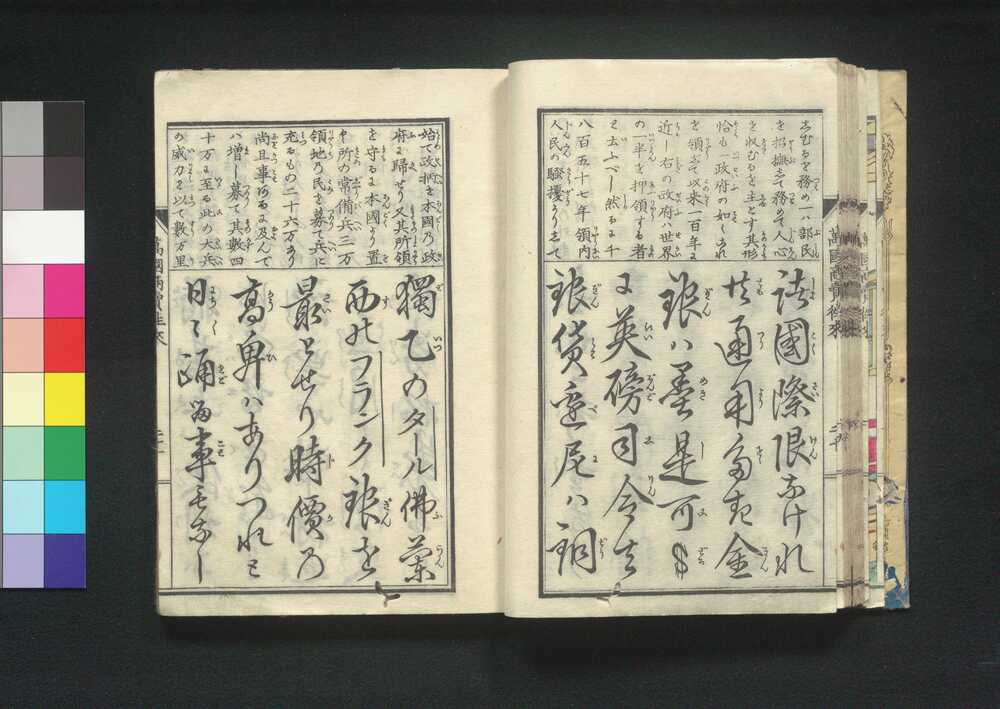 志むるを務め一ハ部民
を招撫して務めて人心
を収むるを主とす其形
恰も一政府の如くあれ
を領して以来一百年に
近し右の政府ハ世界
の一半を押領する者
と云ふべし然るに千
八百五十七年領内
人民の騒擾よりして
諸國際限なけれ
共通用多き金
銀ハ墨是可$
又英磅司令を
銀貨迺尼ハ銅
萬國商賣往來
始て政柄を本國乃政
府に歸せり又其所領
を守るに本國より置
く所の常備兵三万
領地乃民を募て兵に
充るもの二十六万あり
尚且事あるに及んで
ハ増し募て其数四
十万に至る此の大兵
の威力を以て数万里
獨乙のタール佛蘭
西のフランク銀を
最とせり時價乃
高卑ハありつれど
日々踊る事もなし